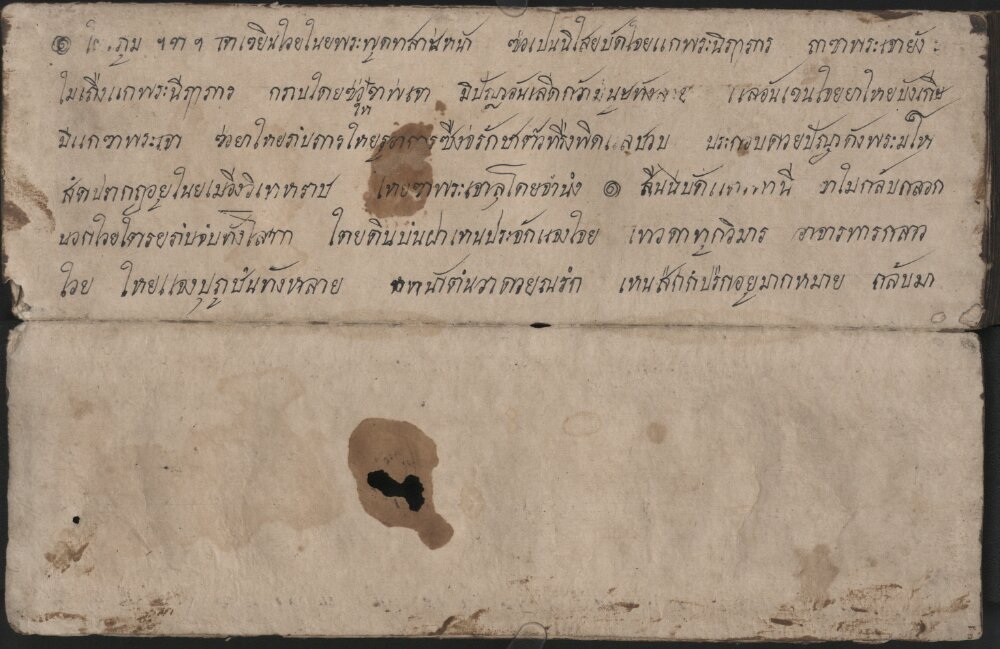 ๏ ภูม ฯขาฯ เจาเขยีนไวยในยพระพูดทสาศหนา ขํอเปนนิไสยปัดไจยแกพระนิฦๅพาร ถาขาพระเจายัง
ไมเถืงแกพระนีฦๅพาร กถาบใดยขํอไหขาพเจา มีปัญาอันเลีดกวามํนุษทังหลาย แลอันเจนไจยยาใหยบังเกีษ
มีแกขาพระเจา ขํอยาใหยภํบภารใหย ซืงจํรักษาตัวทืงพิด แลชวบ ประกอบดวยปัญาดังพระมโห
สัดปรากฎอยูในยเมีองวิเทหราช ไหยขาพระเจาลุโดยจํานํง ๏ สีบนีบัด นี ขาไมกลับกลอก
บอกไวยไตรยภํบจํบทังไสกา ไหยดินบํนฝาเหนประจักแจงไจย เทวดาทูกวิมาร อาจารทารกลาว
ไวย ไหยแจงปุถูชํนทังหลาย หนาตํนวาดวยณรํก เหนสํกกํปรํกอยูมากหมาย กลับมา